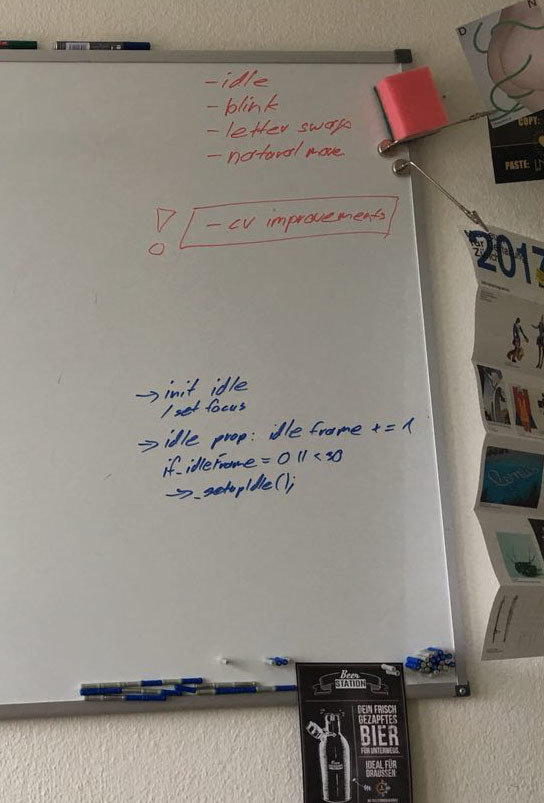 - idle
- blink
- letter swaps
- natural move
! - cv improvements
→ init idle
/ set focus
→ idle prop: idle frame += 1
if _idleFrame = 0 || < 30
→ _setupIdle();
D N
COPY:
PASTE:
2017
Beer
STATION
DEIN FRISCH
GEZAPFTES
BIER
FÜR UNTERWEGS.
IDEAL FÜR
DRAUSSEN